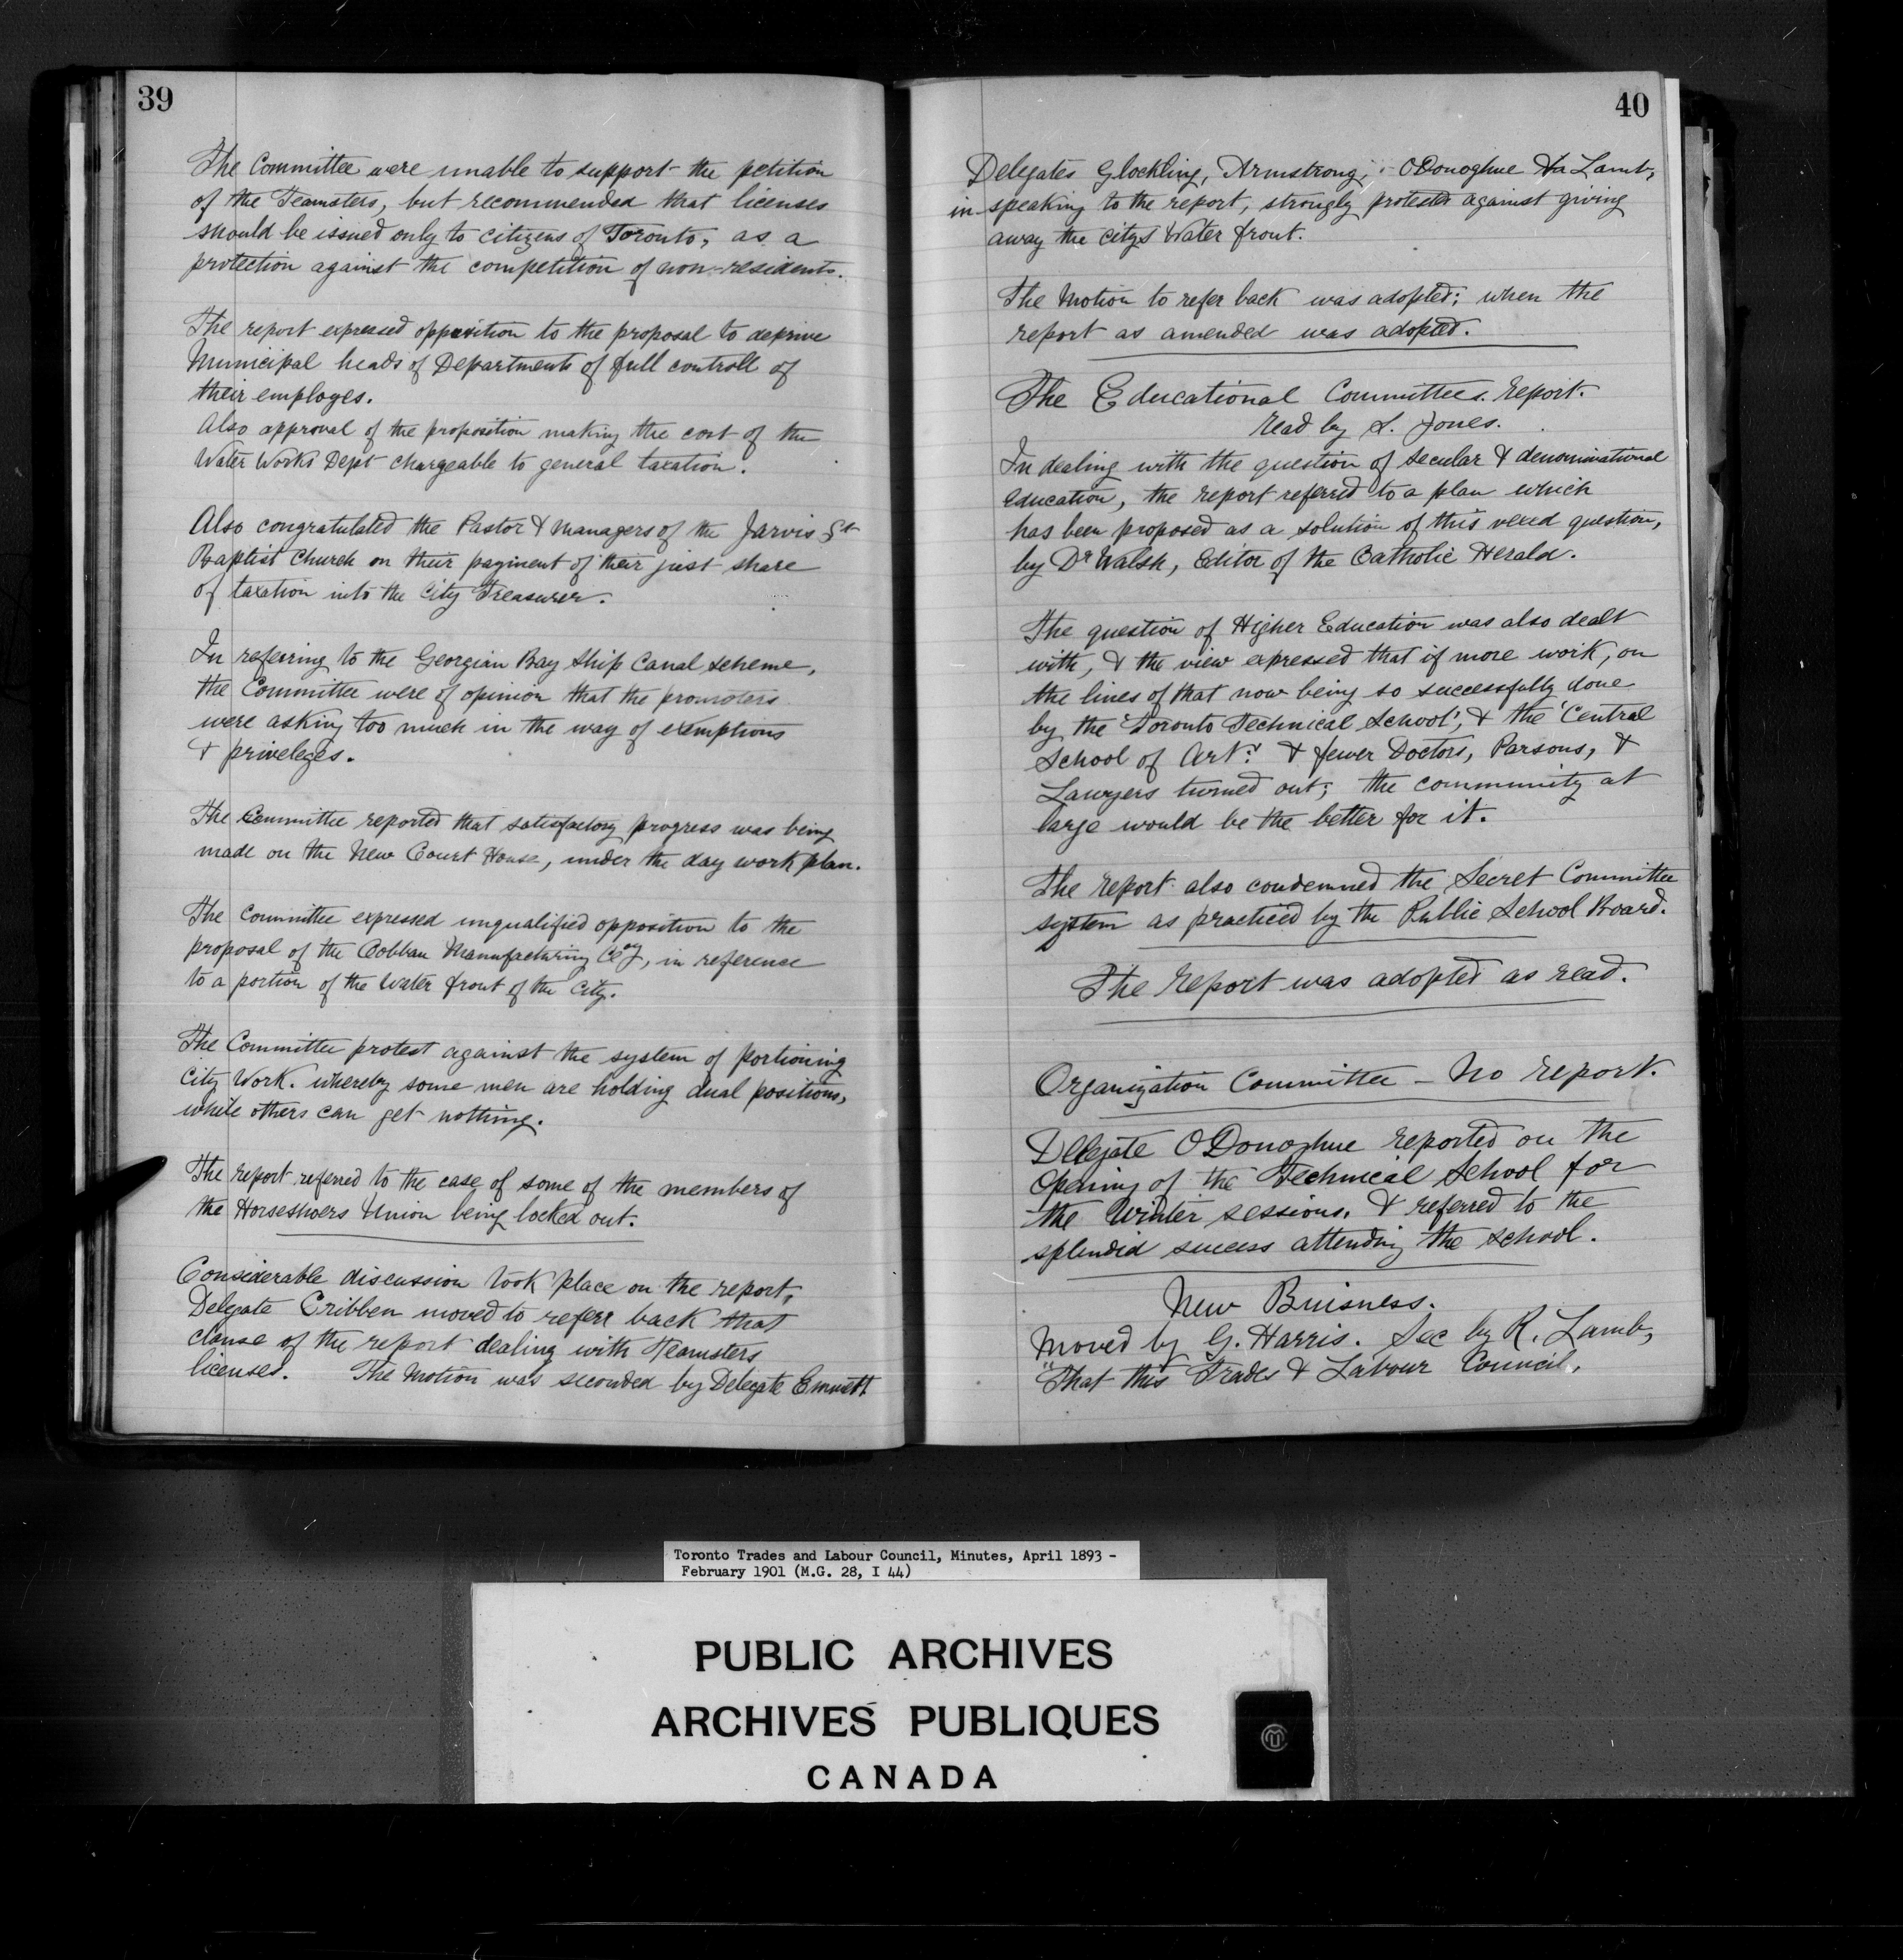 39
The Committee were unable to support the petition
of the Teamsters, but recommended that licenses
should be issued only to citizens of Toronto, as a
protection against the competition of non-residents.
The report expressed opposition to the proposal to deprive
Municipal heads of Departments of full controll of
their employes.
Also approval of the proposition making the cost of the
Water Works Dept chargeable to general taxation.
Also congratulated the Pastor & Managers of the Jarvis St
Baptist Church on their payment of their just share
of taxation into the City Treasurer.
In referring to the Georgian Bay Ship Canal scheme,
the Committee were of opinion that the promoters
were asking too much in the way of exemptions
& priveleges.
The Committee reported that satisfactory progress was being
made on the New Court House, under the day work plan.
The Committee expressed unqualified opposition to the
proposal of the Cobban Manufacturing Coy, in reference
to a portion of the Water front of the City.
The Committee protest against the system of portioning
City Work. whereby some men are holding dual positions,
while others can get nothing.
The report referred to the case of some of the members of
the Horseshoers Union being locked out.
Considerable discussion took place on the report,
Delegate Cribben moved to referr back that
clause of the report dealing with Teamsters
licenses. The Motion was seconded by Delegate Emmett
40
Delegates Glockling, Armstrong, ODonoghue Lamb,
in speaking to the report, strongly protested against giving
away the citys Water front.
The Motion to refer back was adopted; when the
report as amended was adopted.
The Educational Committees. report.
read by S. Jones.
In dealing with the question of secular & denominational
education, the report referred to a plan which
has been proposed as a solution of this vexed question,
by Dr Walsh, Editor of the Catholic Herald.
The question of Higher Education was also dealt
with, & the view expressed that if more work, on
the lines of that now being so successfully done
by the 'Toronto Technical School', & the 'Central
School of Art'. & fewer Doctors, Parsons, &
Lawyers turned out; the community at
large would be the better for it.
The report also condemned the Secret Committee
system as practiced by the Public School Board.
The report was adopted as read.
Organization Committee - No report.
Delegate ODonoghue reported on the
Opening of the Technical School for
the Winter sessions. & referred to the
splendid success attending the school.
New Buisness.
Moved by G. Harris. Sec by R. Lamb,
"That this Trades & Labour Council,
Toronto Trades and Labour Council, Minutes, April 1893 -
February 1901 (M.G. 28, I 44)
PUBLIC ARCHIVES
ARCHIVES PUBLIQUES
CANADA